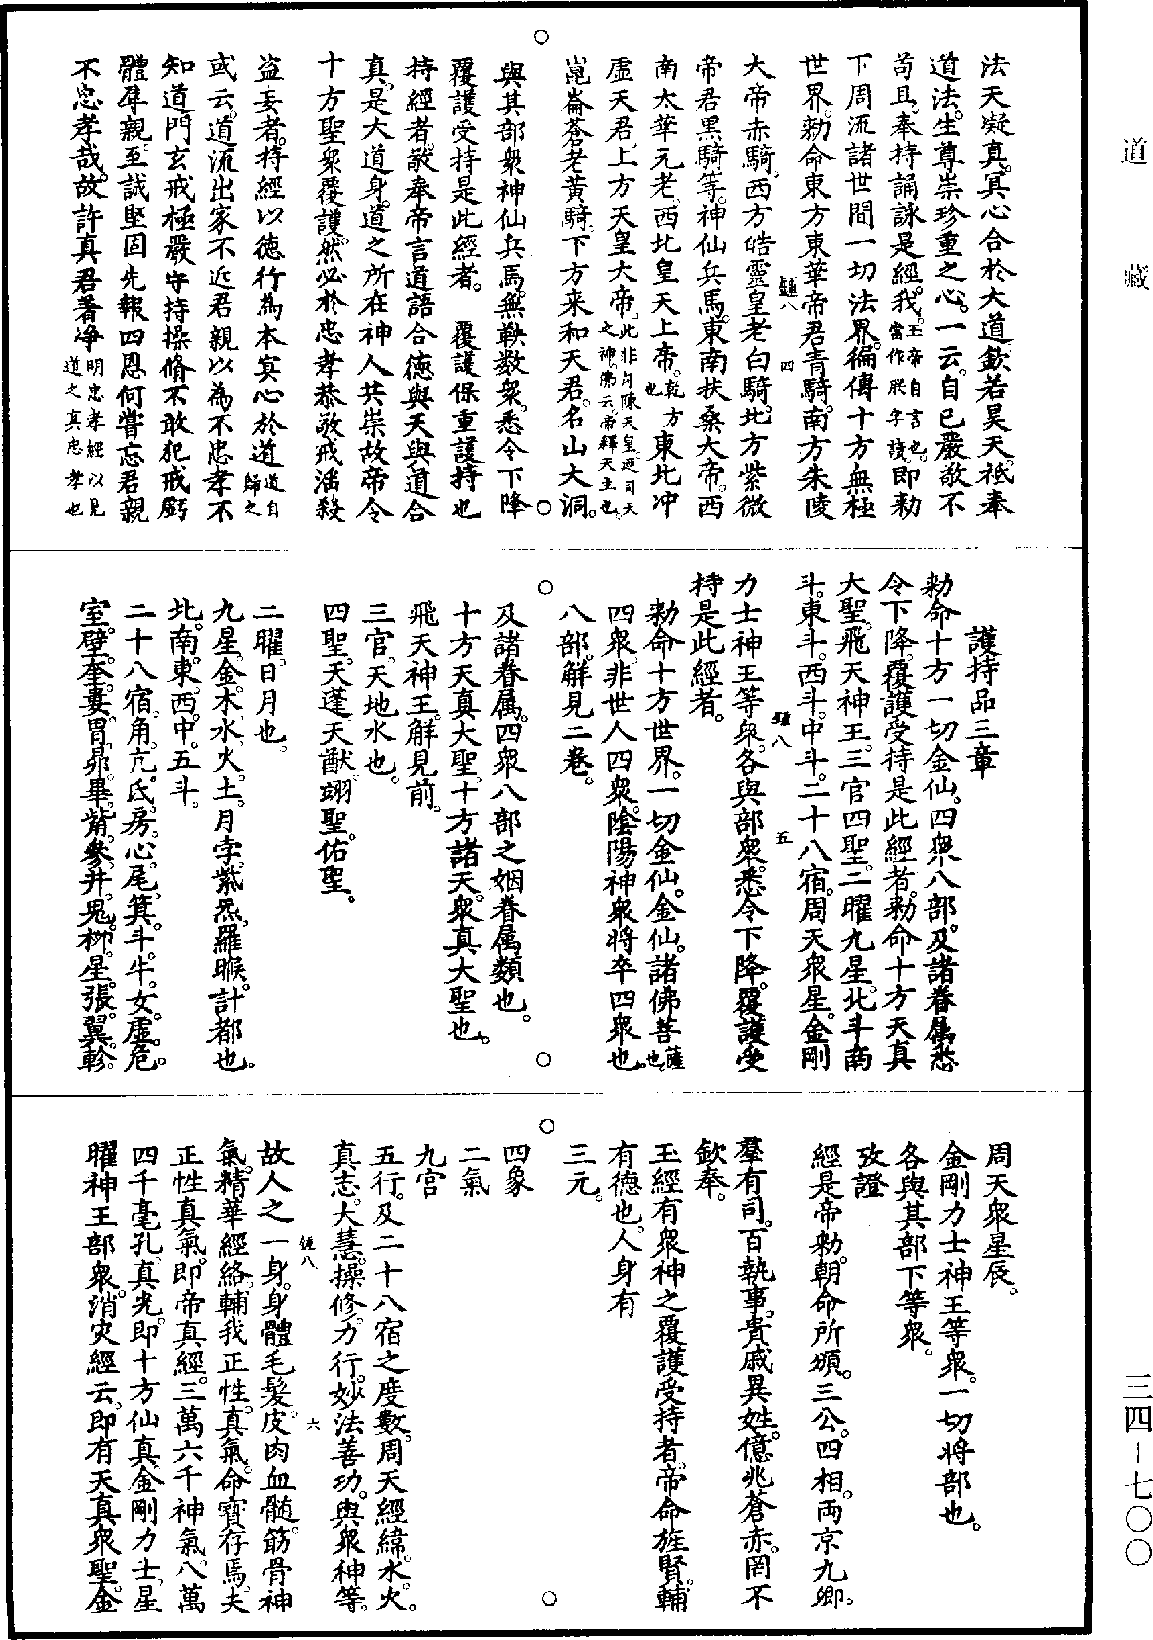 道藏
三四－七〇〇
法天凝真。冥心合於大道。欽若昊天。祗奉
道法。生尊崇珍重之心。一云。自已嚴敬。不
苟且。奉持誦詠是經。我。玉帝自言也。當作朕字讀。即勑
下周流諸世間一切法界。徧傳十方無極
世界。勑命東方東華帝君青騎。南方朱陵
大帝赤騎。西方皓靈皇老白騎。北方紫微
帝君黑騎等。神仙兵馬。東南扶桑大帝。西
南太華元老。西北皇天上帝。乾方也。東北冲
虛天君。上方天皇大帝。此非勾陳天皇。迺司天之神。佛云。帝釋天主也。
崑崙蒼老黃騎。下方来和天君。名山大洞。
與其部衆神仙兵馬。無鞅数衆。悉令下降
覆護受持是此經者。　覆護保重護持也
持經者。敬奉帝言道語合德與天與道合
真。是大道身。道之所在神人共崇故帝令
十方聖衆覆護。然必於忠孝恭敬戒滛殺
盜妄者。持經以德行為本冥心於道道自歸之
或云。道流出家不近君親以為不忠孝不
知道門玄戒極嚴守持操脩不敢犯戒虧
體辱親。至誠堅固先報四恩何嘗忘君親
不忠孝哉。故許真君著淨明忠孝經以見道之真忠孝也
護持品三章
勑命十方一切金仙。四衆八部。及諸眷属悉
令下降。覆護受持是此經者。勑命十方天真
大聖。飛天神王。三官四聖。二曜九星。北斗南
斗。東斗。西斗。中斗。二十八宿。周天衆星。金剛
力士神王等衆。各與部衆。悉令下降。覆護受
持是此經者。
勑命十方世界。一切金仙。金仙。諸佛菩薩也
四衆。非世人四衆。陰陽神衆將卒四衆也。
八部。解見二卷。
及諸眷属。四衆八部之姻眷属類也。
十方天真大聖。十方諸天。衆真大聖也。
飛天神王。解見前。
三官。天地水也。
四聖。天蓬天猷翊聖。佑聖。
二曜。日月也。
九星。金。木。水。火。土。月孛。紫炁。羅睺。計都也。
北。南。東。西。中。五斗。
二十八宿。角。亢。氐。房。心。尾。箕。斗。牛。女。虛。危。
室。壁。奎。婁。胃。昴。畢。觜。參。井。鬼。柳。星。張。翼。軫。
周天衆星辰。
金剛力士神王等衆。一切將部也。
各與其部下等衆。
攷證
經是帝勑。朝命所頒。三公。四相。兩京九卿。
羣有司。百執事。貴戚異姓。億兆蒼赤。罔不
欽奉。
玉經有衆神之覆護受持者。帝命旌賢。輔
有德也。人身有
三元。
四象
二氣
九宮
五行。及二十八宿之度數。周天經緯。水。火。
真志。大慧。操修。力行。妙法善功。與衆神等。
故人之一身。身體毛髮皮肉血髓。筋骨神
氣。精華經絡。輔我正性。真氣。命寶存焉。夫
正性真氣。即帝真經。三萬六千神氣。八萬
四千毫孔。真光。即十方仙真。金剛力士。星
曜神王部衆。消灾經云。即有天真衆聖。金